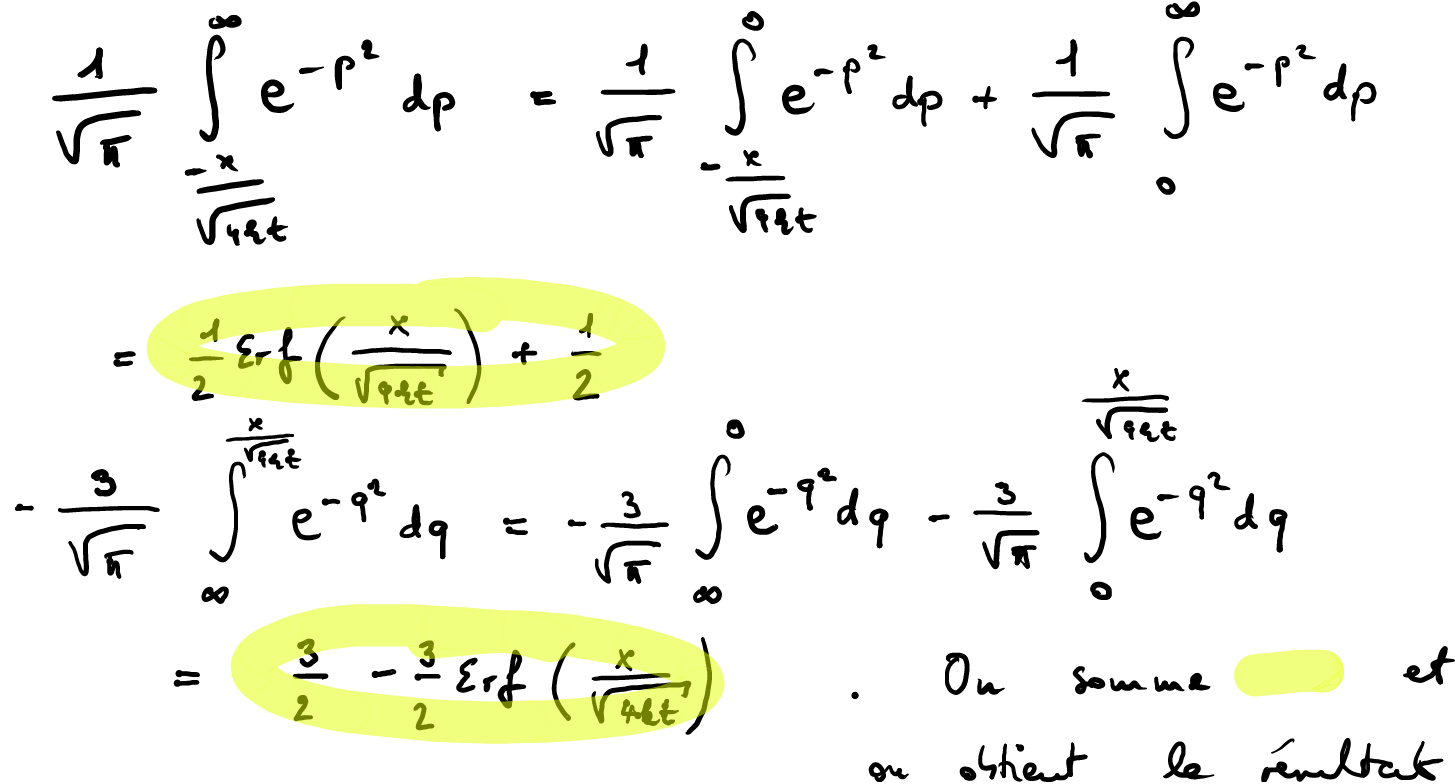 $\frac{1}{\sqrt{\pi}} \int_{\frac{-x}{\sqrt{4kt}}}^{\infty} e^{-p^2} dp = \frac{1}{\sqrt{\pi}} \int_{-\frac{x}{\sqrt{4kt}}}^{0} e^{-p^2} dp + \frac{1}{\sqrt{\pi}} \int_{0}^{\infty} e^{-p^2} dp$
$= \frac{1}{2} Erf \left( \frac{x}{\sqrt{4kt}} \right) + \frac{1}{2}$
$- \frac{3}{\sqrt{\pi}} \int_{\infty}^{\frac{x}{\sqrt{4kt}}} e^{-q^2} dq = - \frac{3}{\sqrt{\pi}} \int_{\infty}^{0} e^{-q^2} dq - \frac{3}{\sqrt{\pi}} \int_{0}^{\frac{x}{\sqrt{4kt}}} e^{-q^2} dq$
$= \frac{3}{2} - \frac{3}{2} Erf \left( \frac{x}{\sqrt{4kt}} \right)$ . On somme et
on obtient le résultat